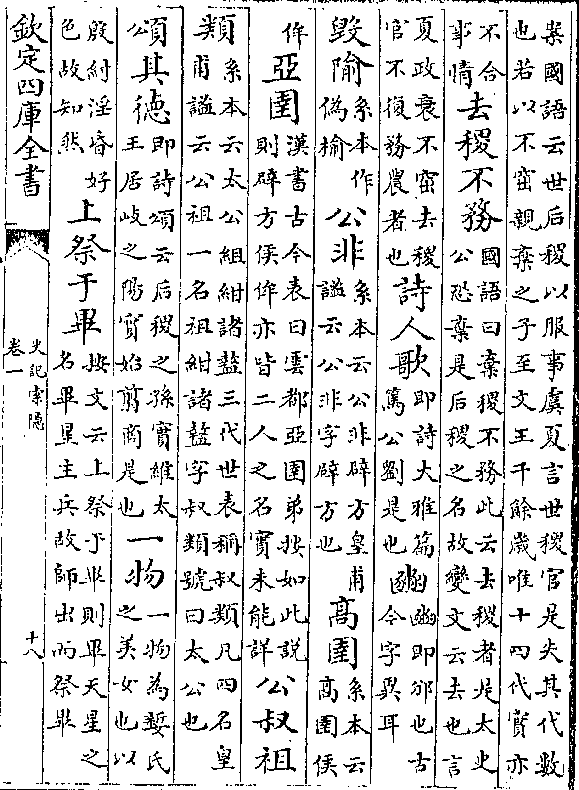 案國語云世后稷以服事虞夏言世稷官是失其代數
也若以不窋親棄之子至文王千餘歲唯十四代實亦
不合
事情
去稷不務
國語曰棄稷不務此云去稷者是太史
公恐棄是后稷之名故變文云去也言
夏政衰不窋去稷
官不復務農者也
詩人歌
即詩大雅篇
篤公劉是也
豳
豳即邠也古
今字異耳
毀隃
系本作
偽榆
公非
系本云公非辟方皇甫
謚云公非字辟方也
高圉
系本云
高圉侯
侔
亞圉
漢書古今表曰雲都亞圉弟按如此說
則辟方侯侔亦皆二人之名實未能詳
公叔祖
類
系本云太公組紺諸盩三代世表稱叔類凡四名皇
甫謚云公祖一名祖紺諸盩字叔類號曰太公也
頌其德
即詩頌云后稷之孫實維太
王居岐之陽實始翦商是也
一物
一物為㜪氏
之美女也以
殷紂淫昏好
色故知然
上祭于畢
按文云上祭于畢則畢天星之
名畢星主兵故師出而祭畢
欽定四庫全書
史記索隱
卷一
十八